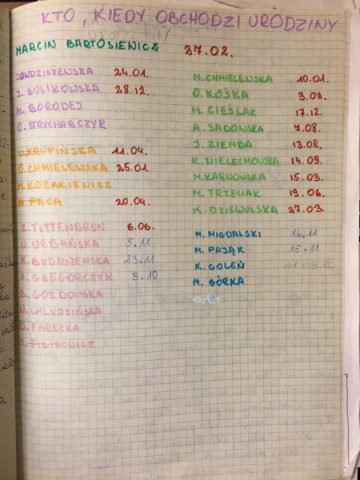 KTO, KIEDY OBCHODZI URODZINY
MARCIN BARTOSIEWICZ 27.02.
BUDZISZEWSKA 24.01.
J. BULIKOWSKA 28.12.
M. BORODEJ
O. STRYCHARCZYK
KRUPIŃSKA 11.04.
O. CHMIELEWSKA 25.01
M. KOZAKIEWICZ
A. PACA 20.04.
Z. TITTENBRUN 6.06.
URBAŃSKA 5.11
K. BUDZISZEWSKA 23.11
A. GREGORCZYK 8.10
GOZDOWSKA
CHLUDZIŃSKA
FARECKA
FILIPOWICZ
M. CHMIELEWSKA 10.01.
O. KOŚKA 3.02.
M. CIEŚLAK 17.12.
A. SADOWSKA 7.08.
J. ZIEMBA 13.08.
K. NIELECHOWSKA 14.09.
M. KARWOWSKA 15.03.
M. TRZECIAK 13.06.
K. DZIEWULSKA 27.03
M. MIGDALSKI 16.11
M. PAJĄK 15.11
K. GOLEŃ
M. GÓRKA